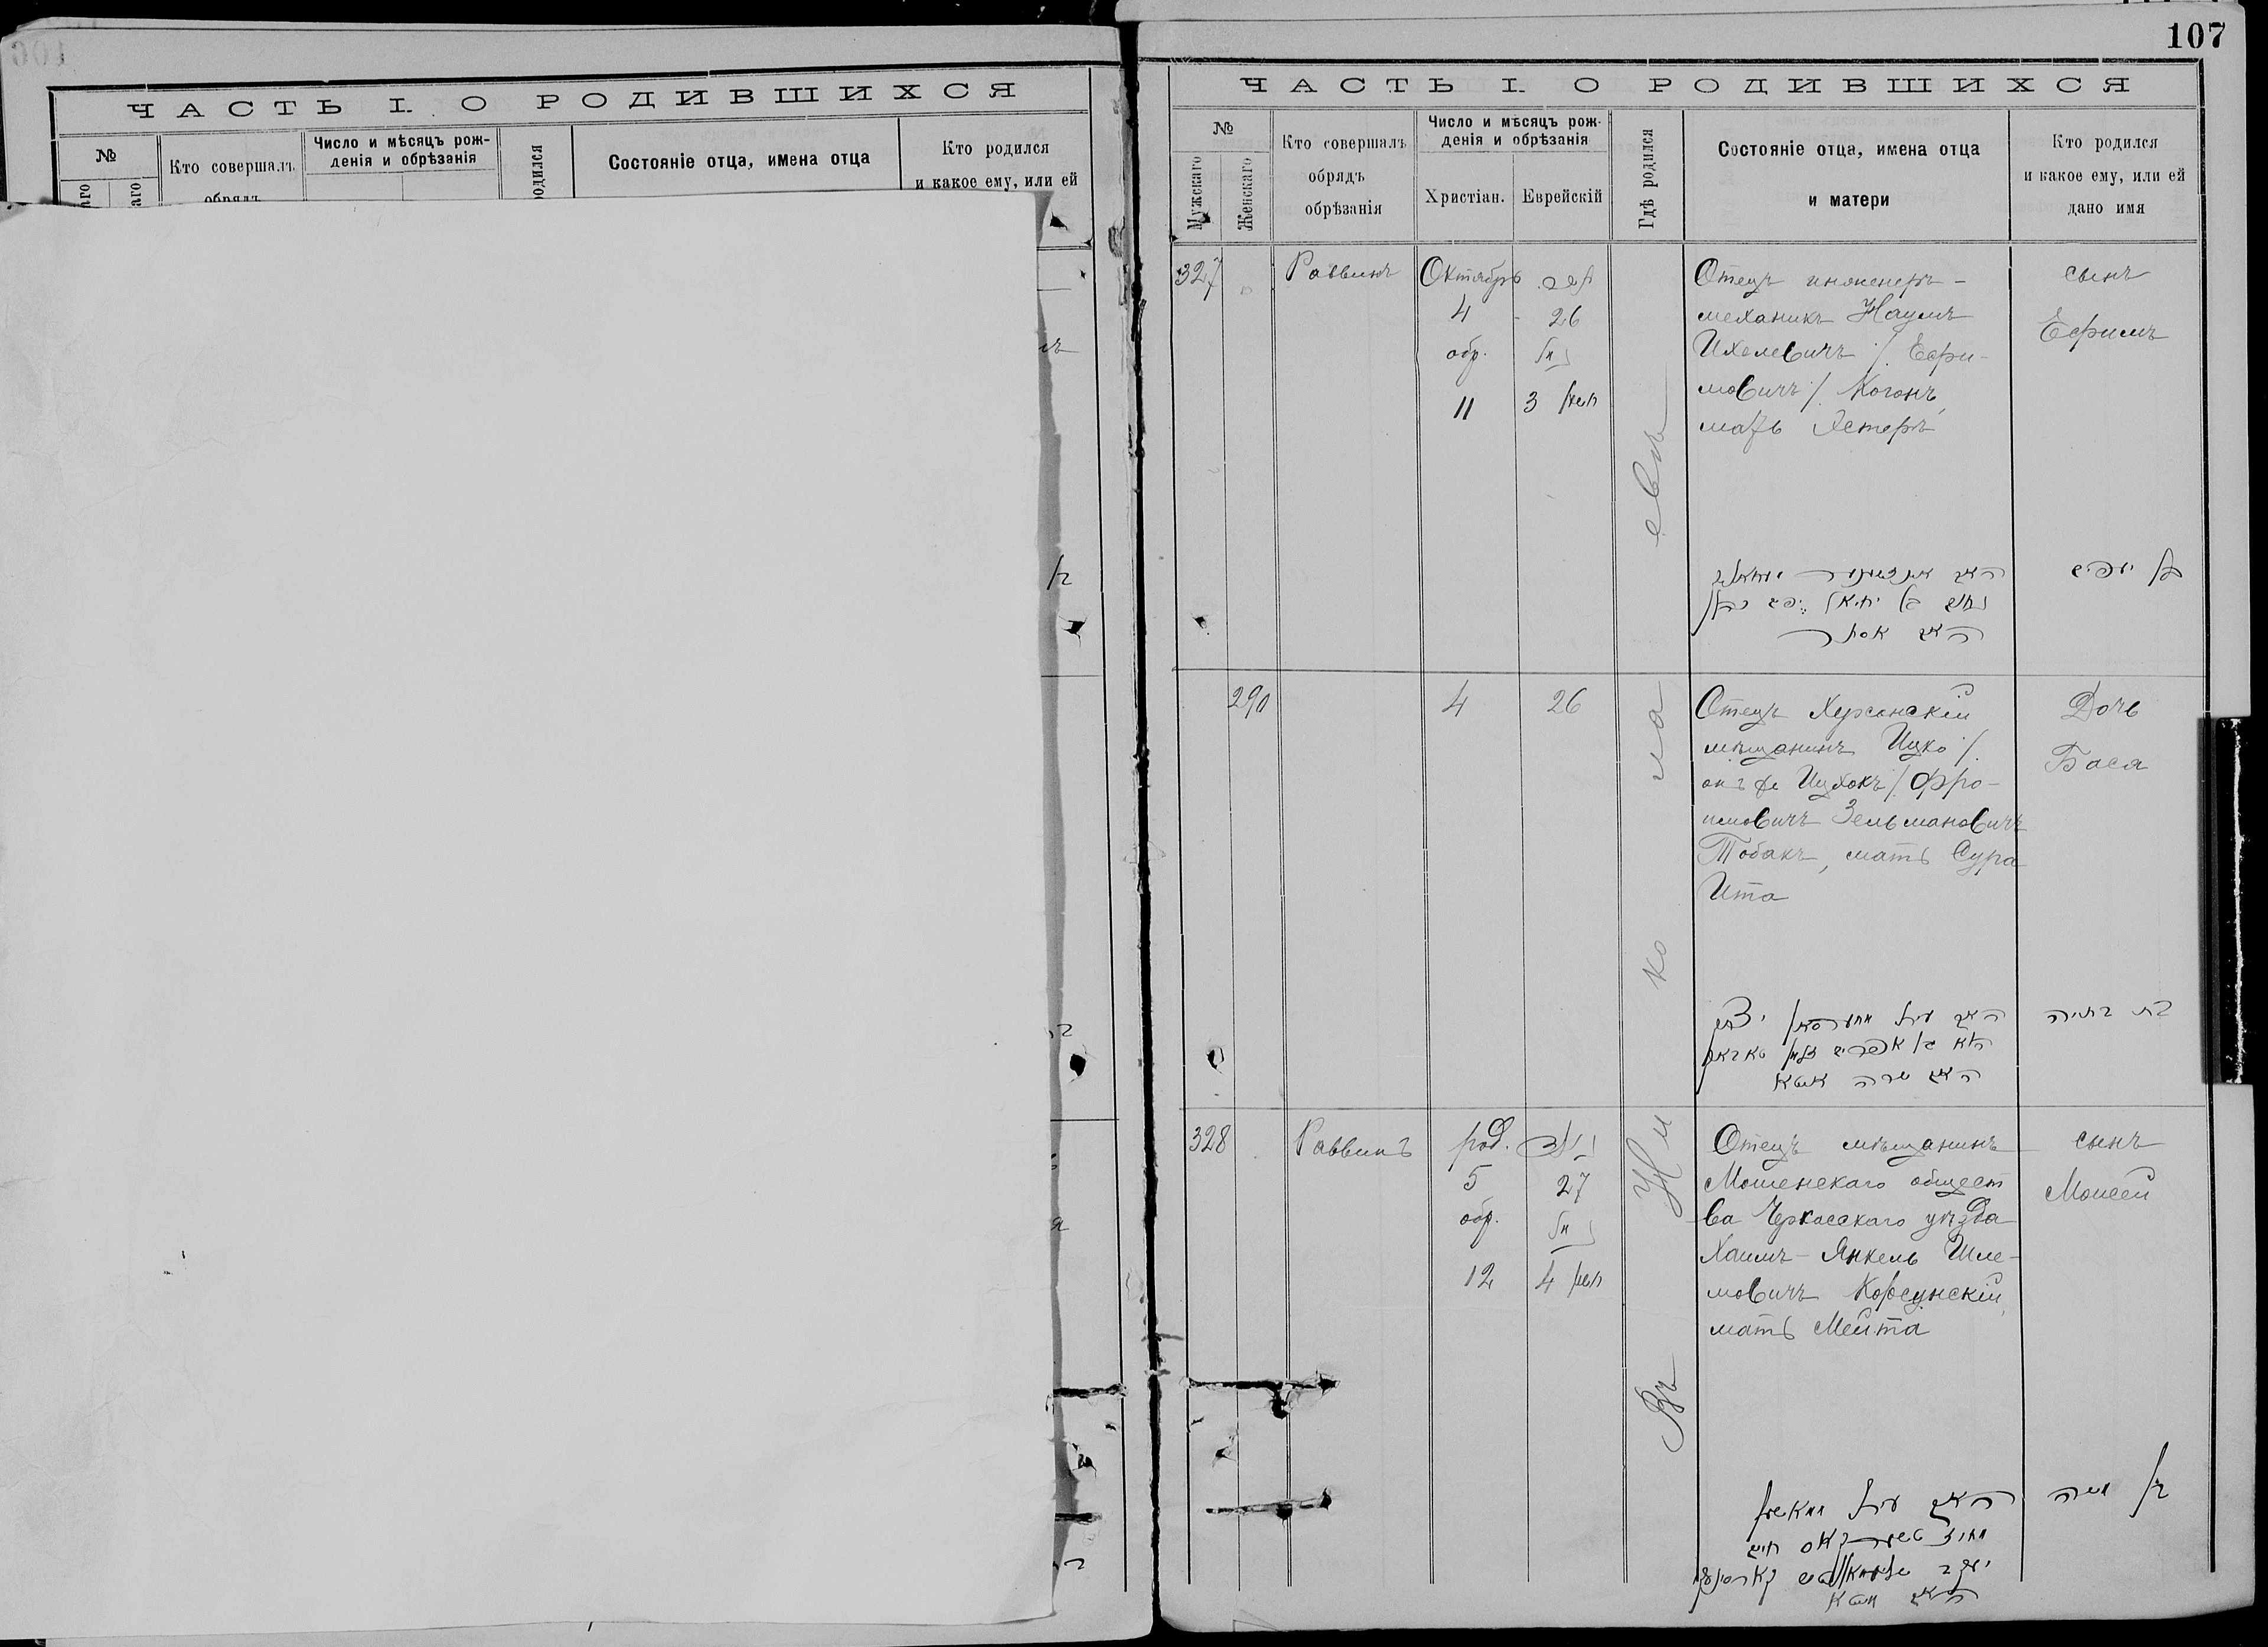 ЧАСТЬ I. О РОДИВШИХСЯ
№
Кто совершалъ
обрядъ
Число и мѣсяцъ рож-
денія и обрѣзанія
одился
Состояніе отца, имена отца
Кто родился
и какое ему, или ей
107
ЧАСТЬ I. О РОДИВШИХСЯ
№
Мужскаго
Женскаго
Кто совершалъ
обрядъ
обрѣзанія
Число и мѣсяцъ рож-
денія и обрѣзанія
Христіан.
Еврейскій
Гдѣ родился
Состояніе отца, имена отца
и матери
Кто родился
и какое ему, или ей
дано имя
327
Раввинъ
Октябрь
4
обр.
11
26
3
Отецъ инженеръ-
механикъ Наумъ
Ихелевичъ /Ефи-
мовичъ/ Коганъ,
мать Эстеръ
сынъ
Ефимъ
האב
נחום בן יחיאל
האב אסתר
בן
290
4
26
Отецъ Херсонскій
мѣщанинъ Ицко /
онъ же Ицхокъ/ Фро-
имовичъ Зельмановичъ
Тобакъ, мать Сура
Ита
Дочь
Бася
האב עיר
בן אפרים
שרה
בת בתיה
328
Раввинъ
род.
5
обр.
12
27
4
Отецъ мѣщанинъ
Мошенскаго общест
ва Черкасскаго уѣзда
Хаимъ-Янкель Шле-
мовичъ Корсунскій,
мать Мейта
сынъ
Моисей
האב עיר
חיים
יעקב
בן משה
Въ Николаевѣ